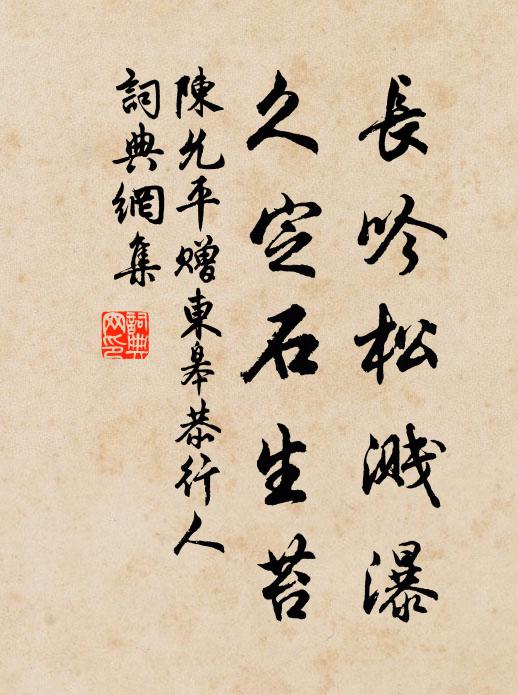 長吟松溅瀑
久定石生苔
陳允平贈東皋恭行人
詞典網集